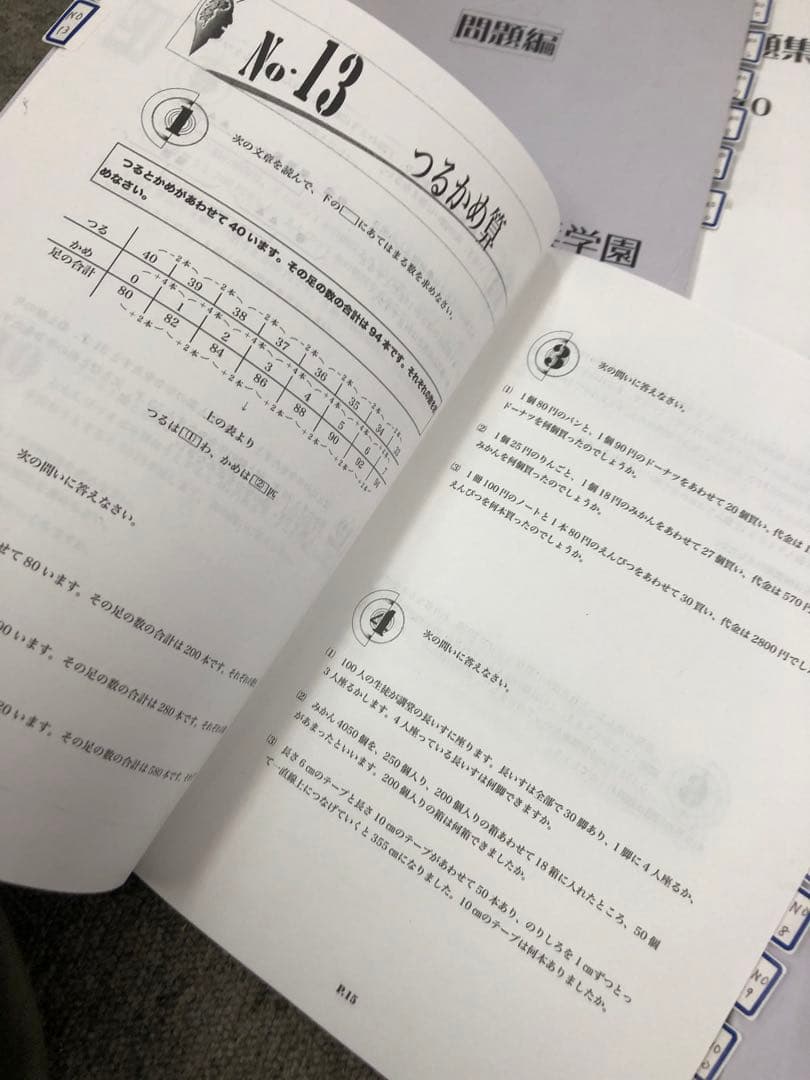 NO 13
No.13
つるかめ算
1
次の文章を読んで、下の□にあてはまる数を求めなさい。
つるとかめがあわせて40います。その足の数の合計は94本です。それぞれの数を求
めなさい。
つる 40 39 38 37 36 35 34 33
かめ 0 1 2 3 4 5 6 7
足の合計 80 82 84 86 88 90 92 94
-2本 -2本 -2本 -2本 -2本 -2本
+4本 +4本 +4本 +4本 +4本 +4本
+2本 +2本 +2本 +2本 +2本 +2本
↓
上の表より
つるは(1)わ、かめは(2)匹
次の問いに答えなさい。
せて80います。その足の数の合計は200本です。それぞれの
00います。その足の数の合計は280本です。それぞれ
20います。その足の数の合計は580本です。
3
次の問いに答えなさい。
(1) 1個80円のパンと、1個90円のドーナツをあわせて20個買い、代金は1
ドーナツを何個買ったのでしょうか。
(2) 1個25円のりんごと、1個18円のみかんをあわせて27個買い、代金は570円
みかんを何個買ったのでしょうか。
(3) 1冊100円のノートと1本80円のえんぴつをあわせて30買い、代金は2800円でし
えんぴつを何本買ったのでしょうか。
4
次の問いに答えなさい。
(1) 100人の生徒が講堂の長いすに座ります。長いすは全部で30脚あり、1脚に4人座るか、
3人座るかします。4人座っている長いすは何脚できますか。
(2) みかん4050個を、250個入り、200個入りの箱あわせて18箱に入れたところ、50個
があまったといいます。200個入りの箱は何箱できましたか。
(3) 長さ6cmのテープと長さ10cmのテープがあわせて50本あり、のりしろを1cmずつとっ
て一直線上につなげていくと355cmになりました。10cmのテープは何本ありましたか。
P.15
問題編
学園
題集
NO 8
NO 9